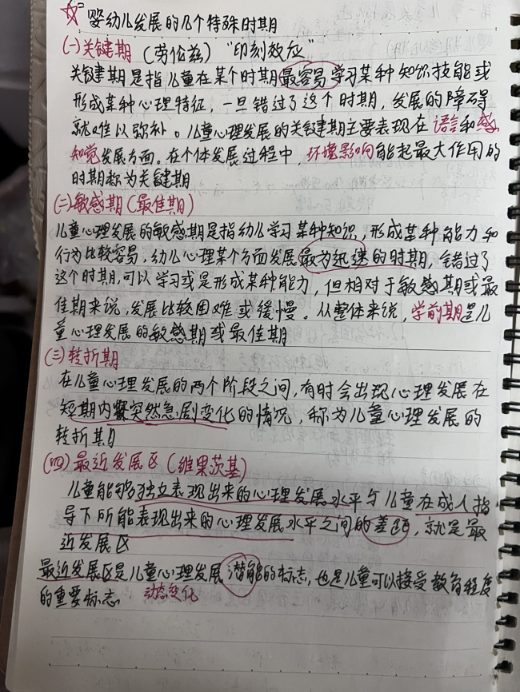 ☆ 婴幼儿发展的几个特殊时期
(一)关键期 (劳伦兹) "印刻效应"
关键期是指儿童在某个时期最容易学习某种知识技能或
形成某种心理特征,一旦错过了这个时期,发展的障碍
就难以弥补。儿童心理发展的关键期主要表现在语言和感
知觉发展方面。在个体发展过程中,环境影响能起最大作用的
时期称为关键期
(二)敏感期(最佳期)
儿童心理发展的敏感期是指幼儿学习某种知识,形成某种能力和
行为比较容易,幼儿心理某个方面发展最为迅速的时期,错过了
这个时期,可以学习或是形成某种能力,但相对于敏感期或最
佳期来说,发展比较困难或缓慢。从整体来说,学前期是儿
童心理发展的敏感期或最佳期
(三)转折期
在儿童心理发展的两个阶段之间,有时会出现心理发展在
短期内突然急剧变化的情况,称为儿童心理发展的
转折期
(四)最近发展区(维果茨基)
儿童能够独立表现出来的心理发展水平与儿童在成人指
导下所能表现出来的心理发展水平之间的差距,就是最
近发展区
最近发展区是儿童心理发展潜能的标志,也是儿童可以接受教育程度
的重要标志 动态变化